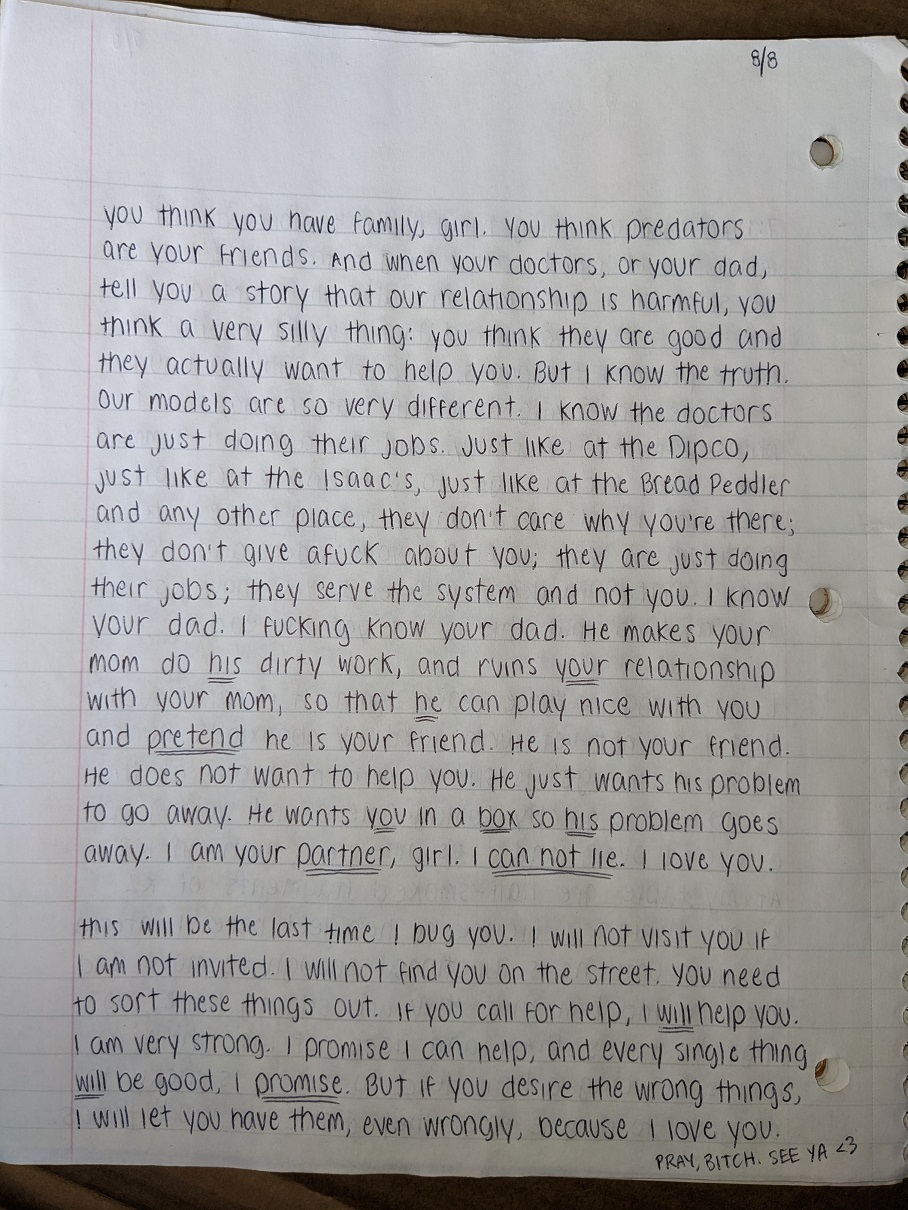 8/8
you think you have family, girl. you think predators
are your friends. And when your doctors, or your dad,
tell you a story that our relationship is harmful, you
think a very silly thing: you think they are good and
they actually want to help you. But I know the truth.
Our models are so very different. I know the doctors
are just doing their jobs. Just like at the Dipco,
just like at the Isaac's, just like at the Bread Peddler
and any other place, they don't care why you're there;
they don't give afuck about you; they are just doing
their jobs; they serve the system and not you. I know
your dad. I fucking know your dad. He makes your
mom do his dirty work, and ruins your relationship
with your mom, so that he can play nice with you
and pretend he is your friend. He is not your friend.
He does not want to help you. He just wants his problem
to go away. He wants you in a box so his problem goes
away. I am your partner, girl. I can not lie. I love you.
this will be the last time I bug you. I will not visit you if
I am not invited. I will not find you on the street. you need
to sort these things out. If you call for help, I will help you.
I am very strong. I promise I can help, and every single thing
will be good, I promise. But if you desire the wrong things,
I will let you have them, even wrongly, because I love you.
PRAY, BITCH. SEE YA <3